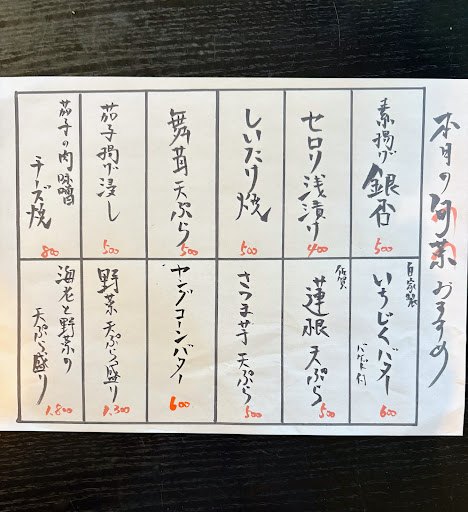 本月の旬菜おすすめ
素揚げ銀杏
500
セロリ浅漬け
400
しいたけ焼
500
舞茸天ぷら
500
茄子揚げ浸し
500
茄子の肉味噌
チーズ焼
800
自家製
いちじくバター
バゲット付
600
佐賀
蓮根天ぷら
500
さつま芋天ぷら
500
ヤングコーンバター
600
野菜天ぷら盛り
1.300
海老と野菜の
天ぷら盛り
1.800